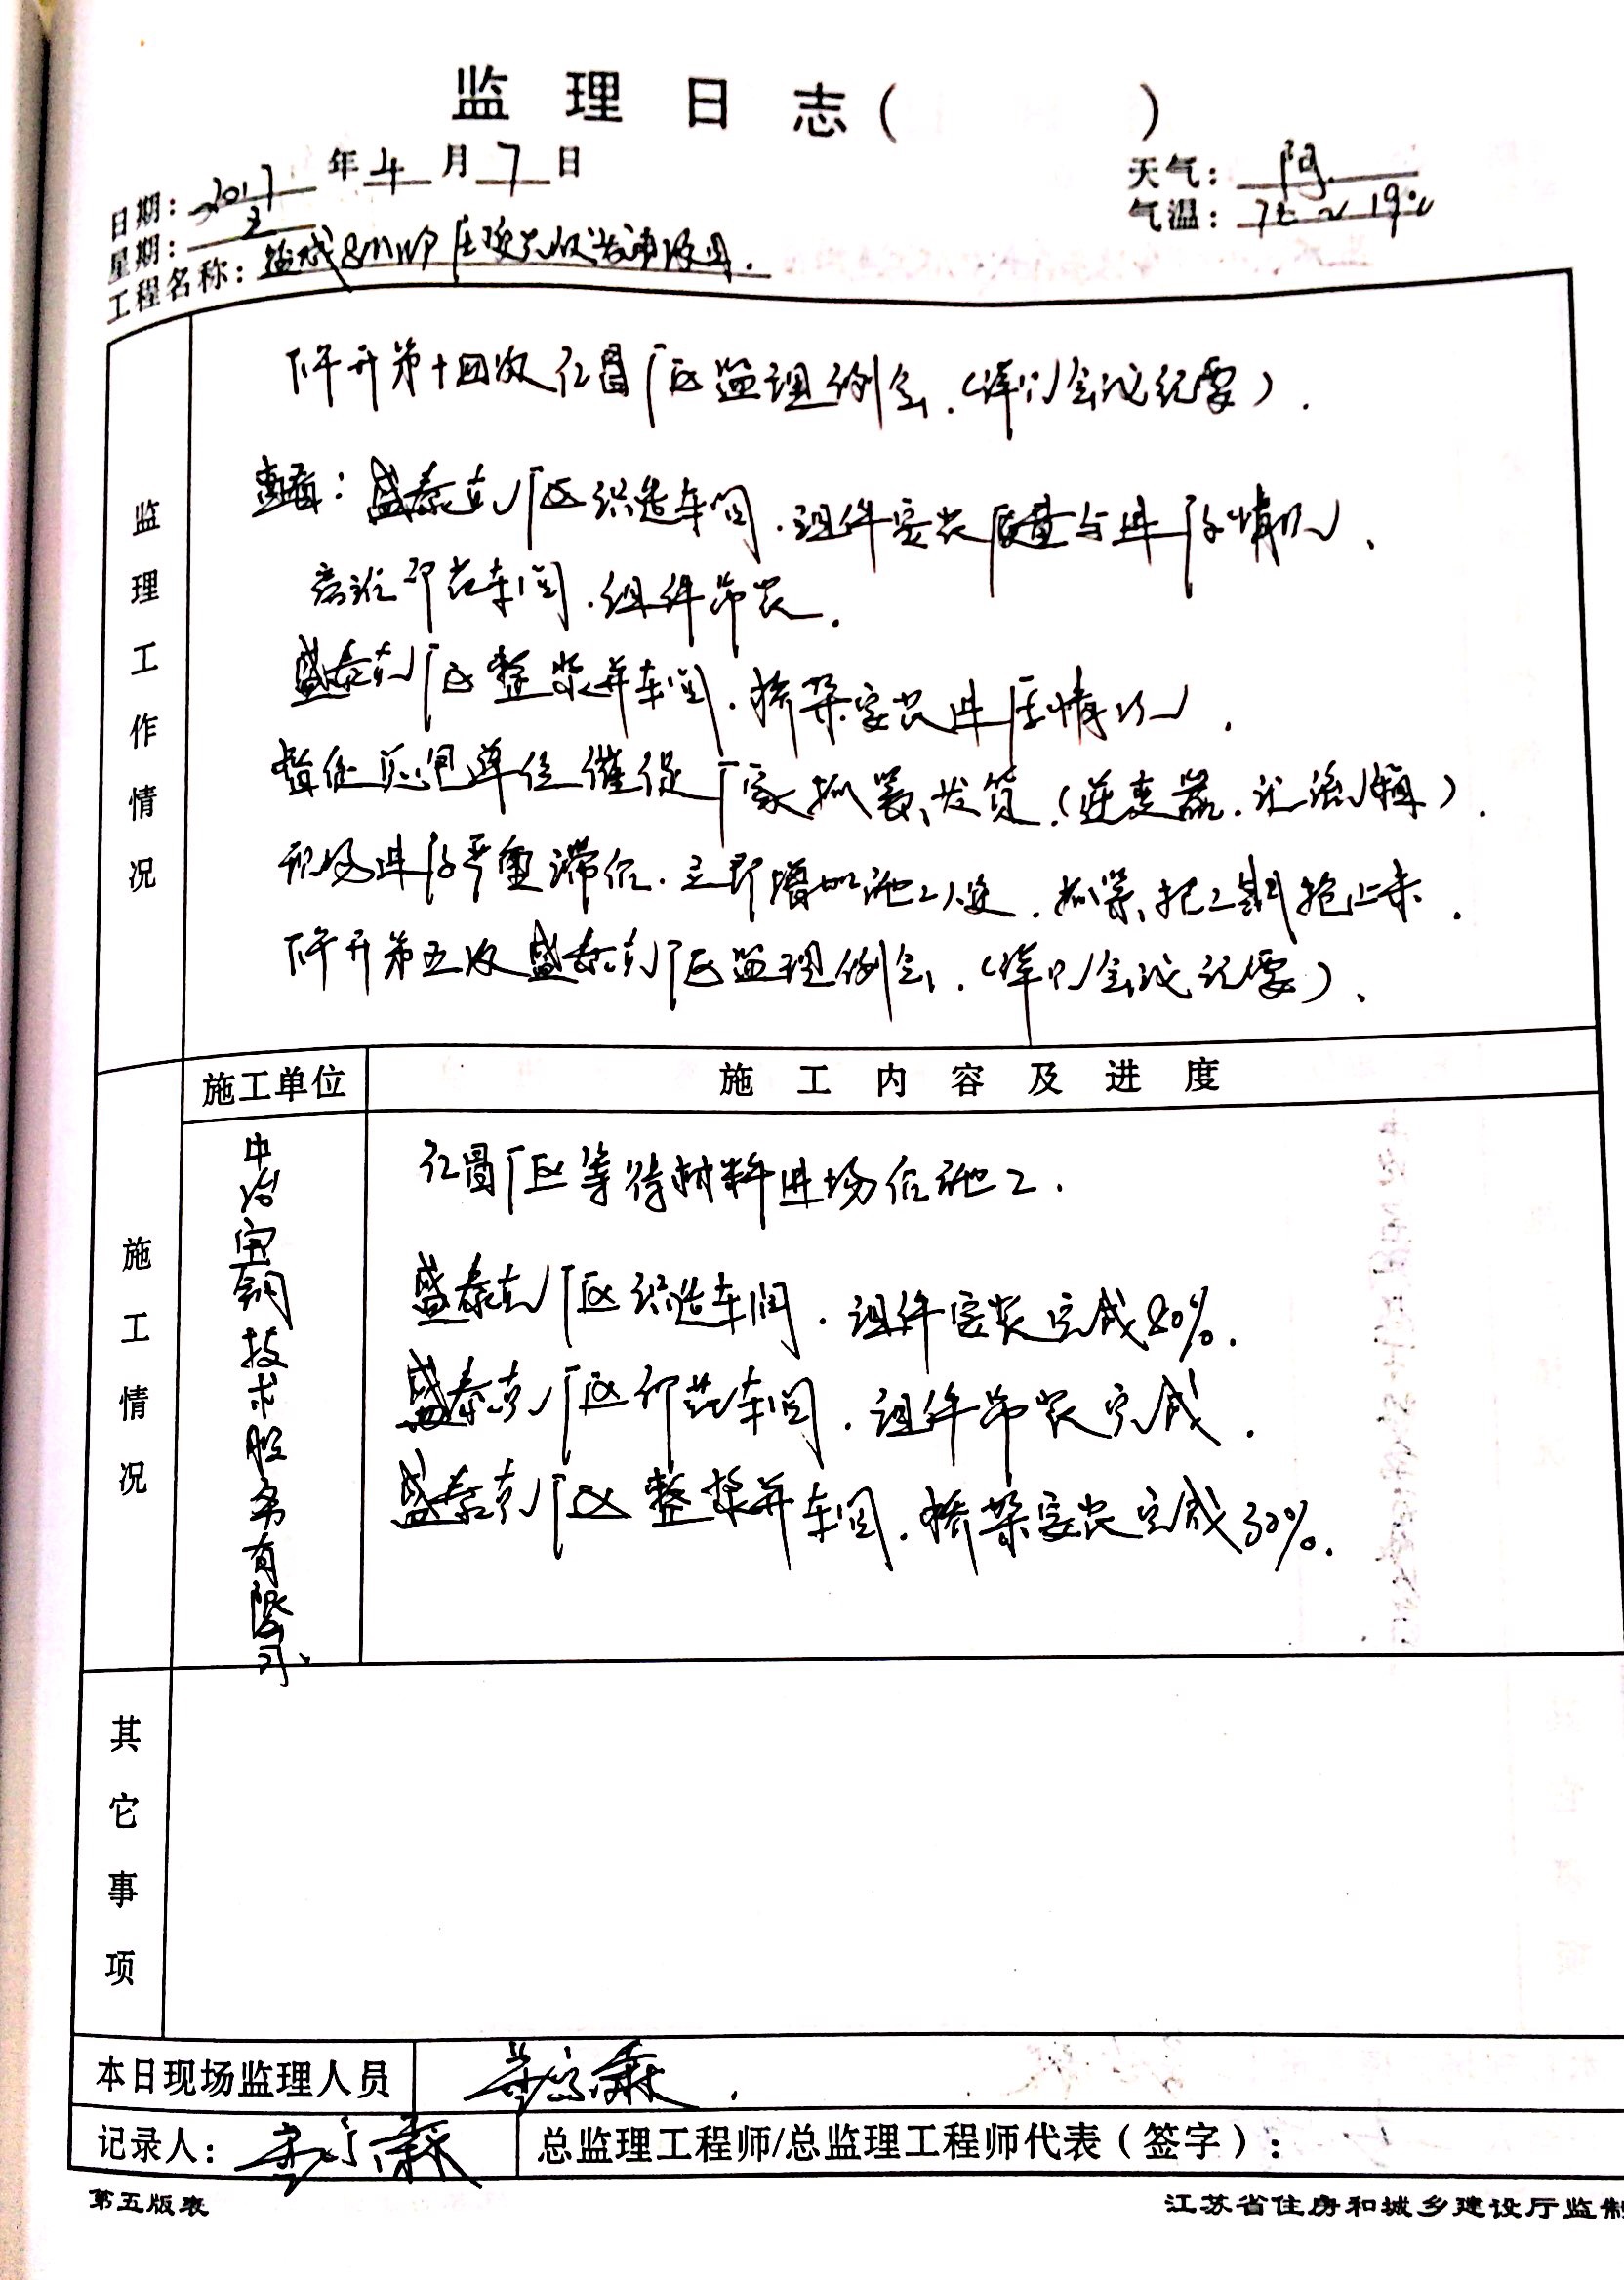 监理日志( )
日期：2017年4月7日
天气：阴
星期：五
气温：7℃～19℃
工程名称：盐城8MWP屋顶光伏发电项目.
监理工作情况
下午开第十四次仁昌厂区监理例会.(详见会议纪要).
查看：盛泰克厂区织造车间.组件安装质量与进度情况、
印花车间.组件吊装.
盛泰克厂区整浆并车间.桥架安装进度情况.
督促总包单位催促厂家抓紧发货.(逆变器.汇流箱).
现场进度严重滞后.立即增加施工人员.抓紧把工期抢上来.
下午开第五次盛泰克厂区监理例会.(详见会议纪要)、
施工情况
施工单位
施工内容及进度
中冶宝钢技术服务有限公司、
仁昌厂区等待材料进场后施工.
盛泰克厂区织造车间.组件安装完成80%.
盛泰克厂区印花车间.组件吊装完成.
盛泰克厂区整浆并车间.桥架安装完成30%.
其它事项
本日现场监理人员
记录人：
总监理工程师/总监理工程师代表(签字)：
第五版表
江苏省住房和城乡建设厅监制